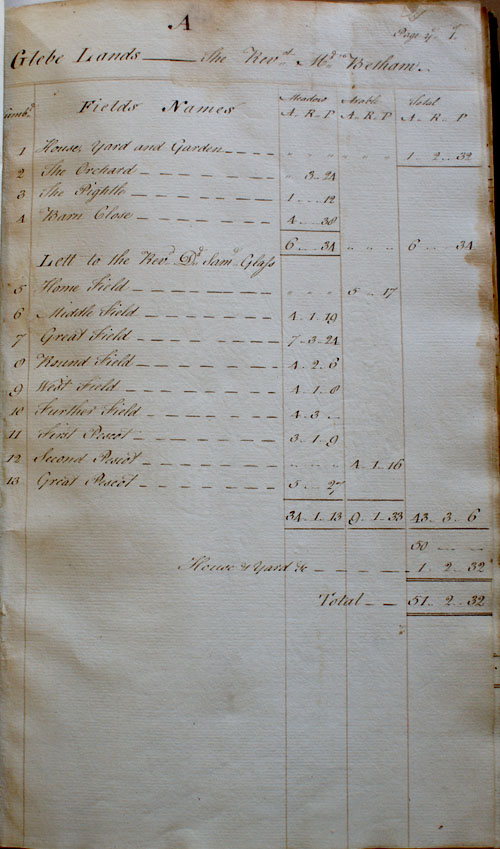 A
Page ye 1st
Glebe Lands — The Revd. Mr. Betham.
Numbr Fields Names Meadow Arable Total
A.. R.. P A.. R.. P A.. R.. P
1 House, Yard and Garden 1.. 2.. 32
2 The Orchard .. 3.. 24
3 The Pightle 1 .. .. 12
4 Barn Close 4 .. .. 38
6 .. .. 34 6 .. .. 34
Lett to the Revd. Dr. Saml. Glass
5 Home Field 5 .. .. 17
6 Middle Field 4.. 1.. 19
7 Great Field 7.. 3.. 24
8 Round Field 4.. 2.. 6
9 West Field 4.. 1.. 8
10 Further Field 4.. 3 ..
11 First Pescot 3.. 1.. 9
12 Second Pescot 4.. 1.. 16
13 Great Pescot 5 .. .. 27
34.. 1.. 13 9.. 1.. 33 43.. 3.. 6
50 .. .. ..
House & Yard &c 1.. 2.. 32
Total 51.. 2.. 32